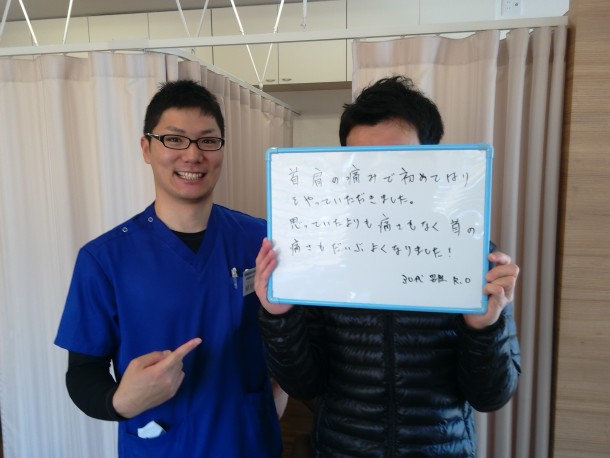 首肩の痛みで初めてはり
をやっていただきました。
思っていたよりも痛さもなく首の
痛さもだいぶよくなりました！
30代 男性 K.O